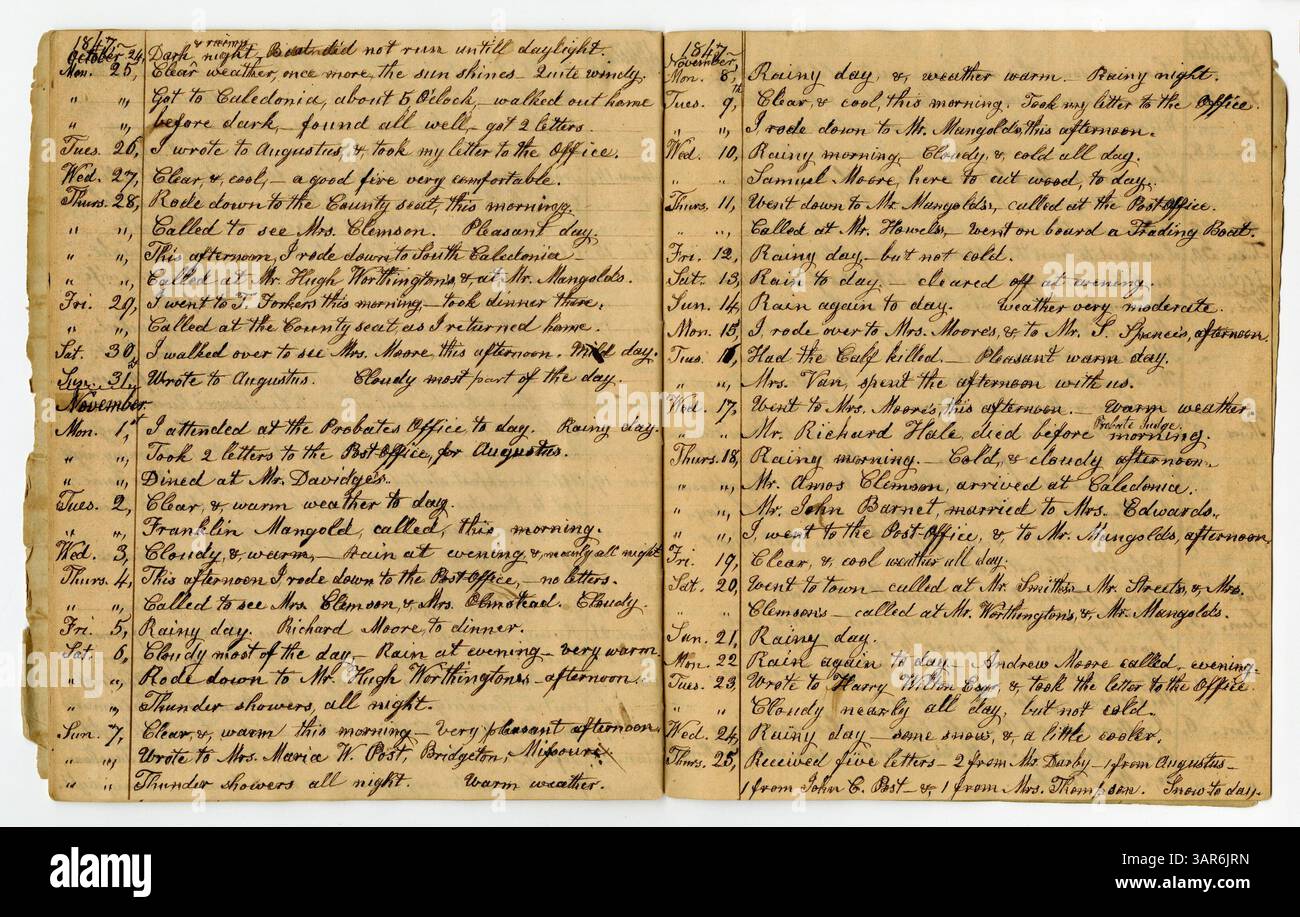 1847,
October 24, Dark & rainy night. Boat did not run untill daylight.
Mon. 25, Clear weather, once more, the sun shines - Quite windy.
" ", Got to Caledonia, about 5 O'Clock, - walked out home
" ", before dark, - found all well, - got 2 letters.
Tues. 26, I wrote to Augustus, & took my letter to the Office.
Wed. 27, Clear, & cool, - a good fire very comfortable.
Thurs. 28, Rode down to the County seat, this morning.
" ", Called to see Mrs. Clemson. Pleasant day.
" ", This afternoon, I rode down to South Caledonia -
" ", Called at Mr. Hugh Worthington's, & at Mr. Mangolds.
Fri. 29, I went to T. Forkers this morning - took dinner there,
" ", Called at the County seat, as I returned home.
Sat. 30, I walked over to see Mrs. Moore, this afternoon. Mild day.
Sun. 31, Wrote to Augustus. Cloudy most part of the day.
November.
Mon. 1,st I attended at the Probates Office to day. Rainy day.
" ", Took 2 letters to the Post Office, for Augustus.
" ", Dined at Mr. Davidge's.
Tues. 2, Clear, & warm weather to day.
" ", Franklin Mangold, called, this morning.
Wed. 3, Cloudy, & warm, - Rain at evening, & nearly all night
Thurs. 4, This afternoon I rode down to the Post Office, - no letters.
" ", Called to see Mrs. Clemson, & Mrs. Olmstead. Cloudy.
Fri. 5, Rainy day. Richard Moore, to dinner.
Sat. 6, Cloudy most of the day, - Rain at evening - very warm.
" ", Rode down to Mr. Hugh Worthington's - afternoon.
" ", Thunder showers, all night.
Sun. 7, Clear, & warm this morning - Very pleasant afternoon.
" ", Wrote to Mrs. Maria W. Post, Bridgeton, Missouri.
" ", Thunder showers all night. Warm weather.
1847
November,
Mon. 8, Rainy day, & weather warm - Rainy night.
Tues. 9,th Clear, & cool, this morning. Took my letter to the Office.
" ", I rode down to Mr. Mangolds, this afternoon.
Wed. 10, Rainy morning, - Cloudy, & cold all day.
" " Samuel Moore, here to cut wood, to day.
Thurs. 11, Went down to Mr. Mangold's, called at the Post Office.
" ", Called at Mr. Howel's, - went on board a Trading Boat.
Fri. 12, Rainy day - but not cold.
Sat. 13, Rain to day. - cleared off at evening.
Sun. 14, Rain again to day. weather very moderate.
Mon. 15, I rode over to Mrs. Moore's, & to Mr. S. Spence's, afternoon.
Tues. 16, Had the Calf killed. - Pleasant warm day.
" ", Mrs. Van, spent the afternoon with us.
Wed. 17, Went to Mrs. Moore's, this afternoon. - Warm weather.
" ", Mr. Richard Hale, Probate Judge. died before morning.
Thurs. 18, Rainy morning. - Cold, & cloudy afternoon.
" ", Mr. Amos Clemson, arrived at Caledonia.
" ", Mr. John Barnet, married to Mrs. Edwards.,
" ", I, went to the Post Office, & to Mr. Mangolds, afternoon,
Fri. 19, Clear, & cool weather all day.
Sat. 20, Went to town - called at Mr. Smith's, Mr. Street's, & Mrs.
" ", Clemson's - called at Mr. Worthington's, & Mr. Mangolds.
Sun. 21, Rainy day.
Mon. 22 Rain again to day - Andrew Moore called - evening.
Tues. 23, Wrote to Harry Wilton Esqr, & took the letter to the Office
" " Cloudy nearly all day, but not cold.
Wed. 24, Rainy day - some snow, & a little cooler.
Thurs. 25, Received five letters - 2 from Mr. Darby - 1 from Augustus -
1 from John C. Post - & 1 from Mrs. Thompson. Snow to day.
alamy
Image ID: 3AR6JRN
www.alamy.com